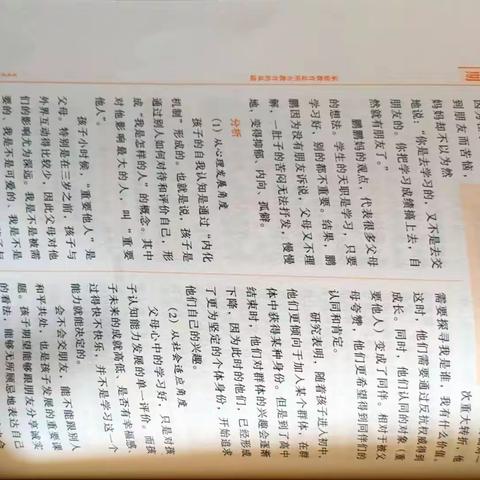 家庭教育是所有教育的基础
到朋友而苦恼
妈妈却不以为然
地说：“你是去学习的，又不是去交
朋友的。你把学习成绩搞上去，自
然就有朋友了。”
鹏鹏妈的观点，代表很多父母
的想法。学生的天职是学习，只要
学习好，别的都不重要。结果，鹏
鹏因为没有朋友诉说，父母又不理
解，一肚子的苦闷无法抒发，慢慢
地，变得抑郁、内向、孤僻。
分析
（1）从心理发展角度
孩子的自我认知是通过“内化
机制”形成的。也就是说，孩子是
通过别人如何对待和评价自己，形
成“我是怎样的人”的概念。其中
对他影响最大的人，叫“重要
他人”。
孩子小时候，“重要他人”是
父母。特别是在三岁之前，孩子与
外界互动得比较少，因此父母对他
们的影响尤为深远。我是不是被需
要的、我是不是可爱的、我是不是
次重大转折，他
需要探寻我是谁，我有什么价值。
这时，他们需要通过反抗权威得到
成长。同时，他们认同的对象（重
要他人）变成了同伴。相对于被父
母夸赞，他们更希望得到同伴们的
认同和肯定。
研究表明，随着孩子进入初中，
他们更倾向于加入某个群体，在群
体中获得某种身份。但是到了高中
结束时，他们对群体的兴趣会逐渐
下降，因为此时的他们，已经形成
了更为坚定的个体身份，开始追求
他们自己的兴趣。
（2）从社会适应角度
父母心中的学习好，只是对孩
子认知能力发展的单一评价。而孩
子未来的成就高低、是否有幸福感、
过得快不快乐，并不是学习这一个
能力就能决定的。
会不会交朋友，能不能跟别人
和平共处，也是孩子发展的重要课
题。孩子期望能够跟朋友分享诚实
的看法，能够无所顾忌地表达自己